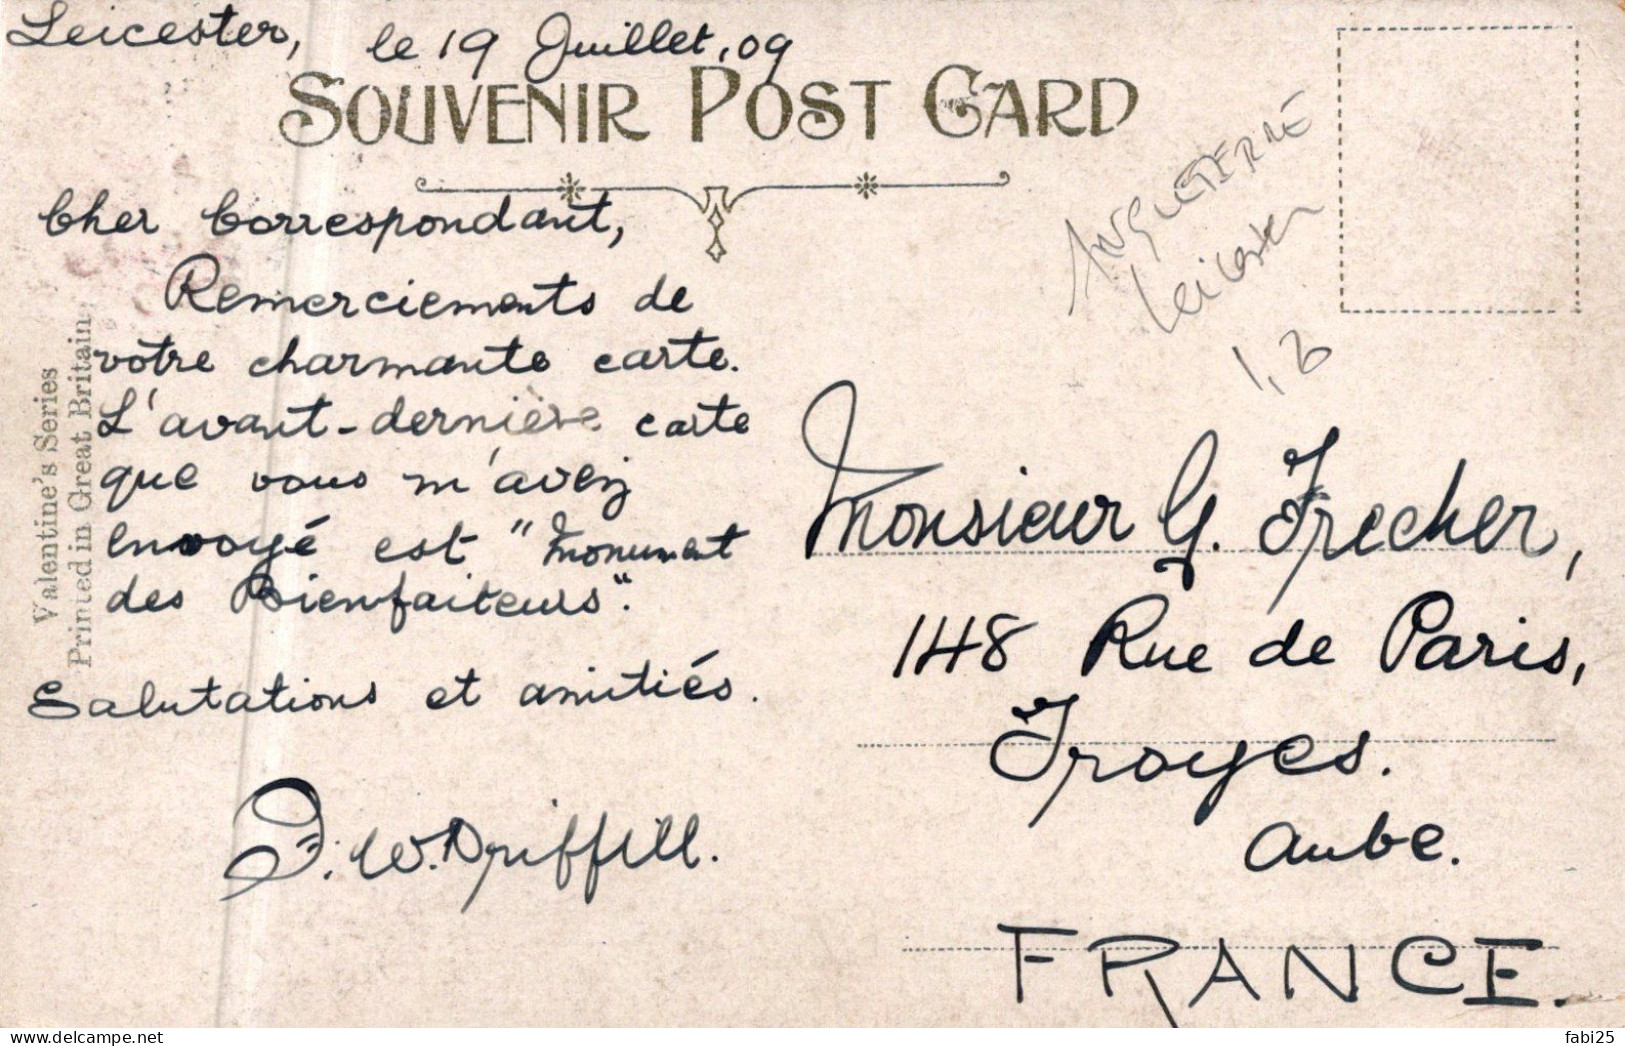 Leicester, le 19 Juillet, 09
SOUVENIR POST CARD
Cher Correspondant,
Remerciements de
votre charmante carte.
L'avant-dernière carte
que vous m'avez
envoyé est "Monument
des Bienfaiteurs".
Salutations et amitiés.
W. Driffill.
Valentine's Series
Printed in Great Britain
ANGLETERRE
Leicester
Monsieur G. Frecher,
148 Rue de Paris,
Troyes.
Aube.
FRANCE.
fabi25